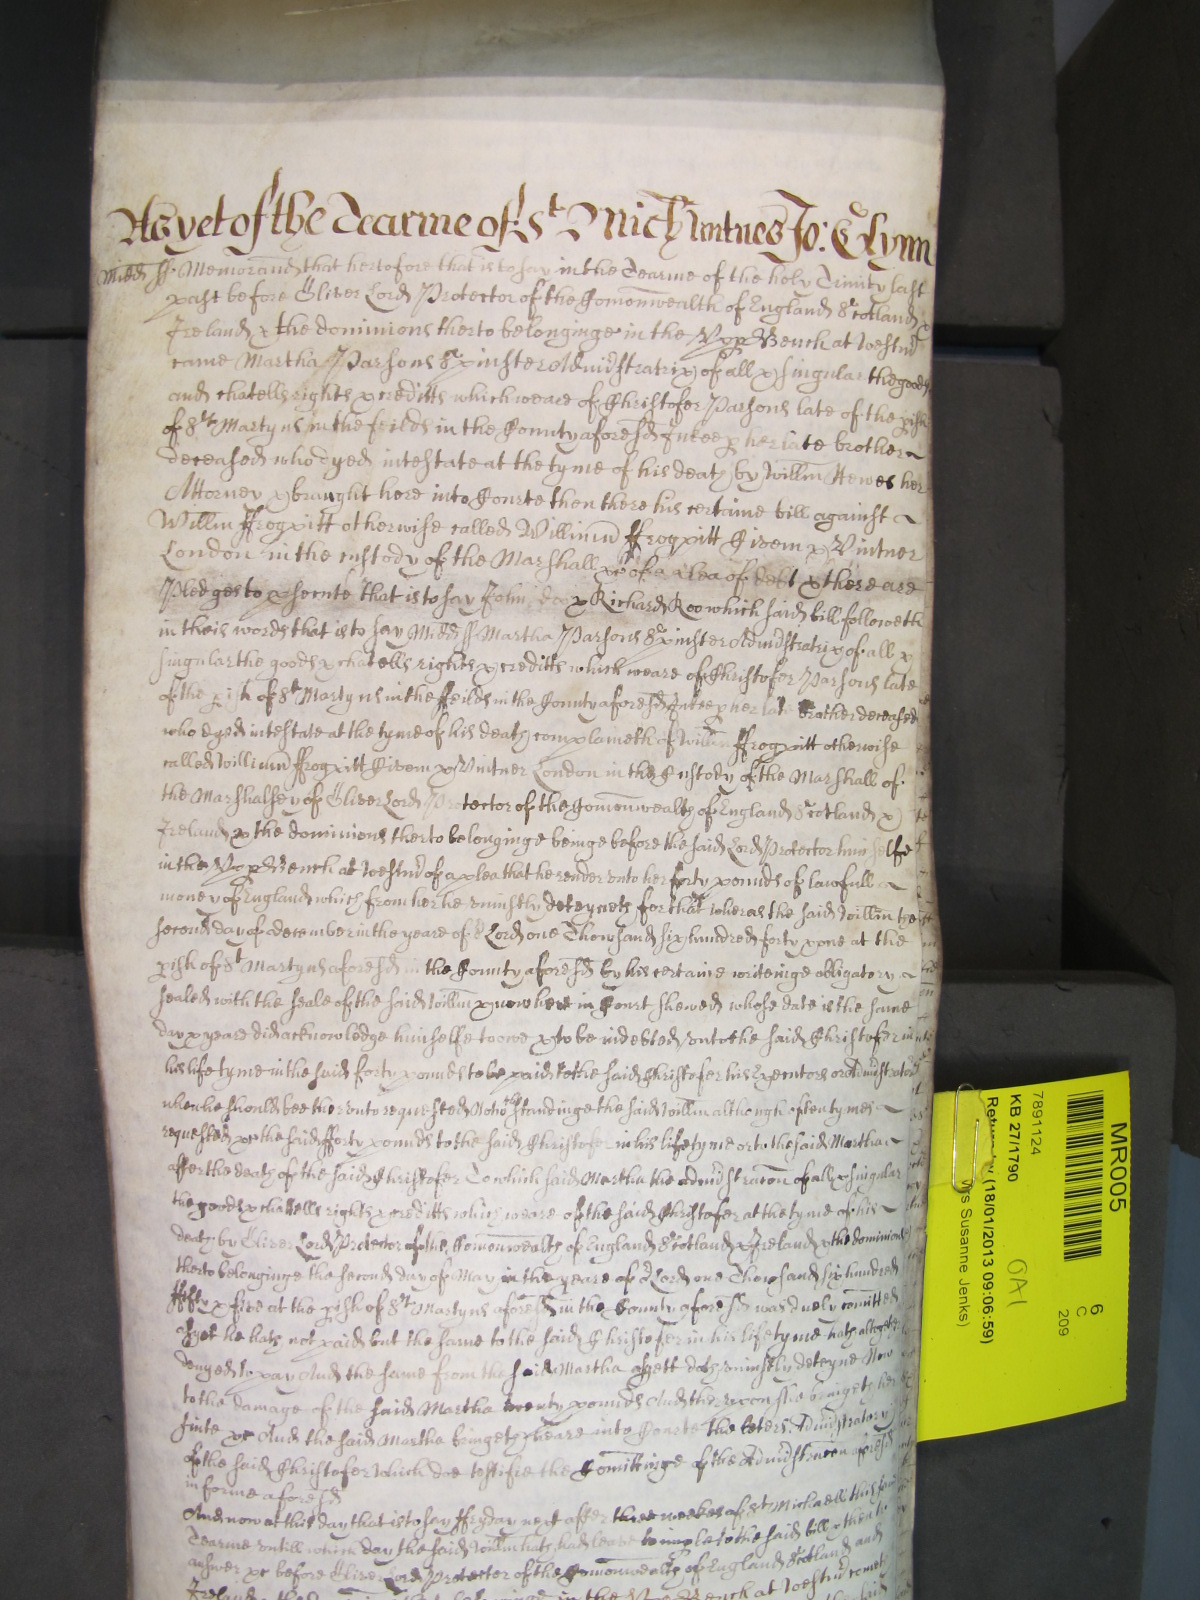 As yet of the Tearme of St Mich Wittnes Jo: Glynn
Midd ss Memorand that hertofore that is to say in the Tearme of the holy Trinity last
past before Oliver Lord Protector of the Comonwealth of England Scotland &
Ireland & the dominions therto belonginge in the Upp Bench at Westmr
came Martha Parsons Spinster Administratrix of all & singular the goods
and chattells rights & creditts which weare of Christofer Parsons late of the pish
of St Martyns in the feilds in the County aforesd Inkeep her late brother
deceased who dyed intestate at the tyme of his death by Willm Hewes her
Attorney & brought here into Courte then there his certaine bill against
Willm Frogpitt otherwise called William Frogpitt Citizen & Vintner
London in the custody of the Marshall &c of a plea of debt & there are
Pledges to psecute that is to say John Doo & Richard Roo which said bill followeth
in theis words that is to say Midd ss Martha Parsons Spinster Administratrix of all &
singular the goods & chatells rights & creditts which weare of Christofer Parsons late
of the pish of St Martyns in the Feilds in the County aforesd Inkeep her late brother deceased
who dyed intestate at the tyme of his death complaineth of Willm Frogpitt otherwise
called William Frogpitt Citizen & Vintner London in the Custody of the Marshall of
the Marshalsey of Oliver Lord Protector of the Comonwealth of England Scotland &
Ireland & the dominions therto belonginge beinge before the said Lord Protector him selfe
in the Upp Bench at Westmr of a plea that he render unto her forty pounds of lawfull
money of England which from her he uniustly deteyneth for that wheras the said Willm the
second day of december in the yeare of or Lord one Thowsand six hundred forty & one at the
pish of St Martyns aforesd in the County aforesd by his certaine writeinge obligatory
sealed with the seale of the said Willm & now here in Court shewed whose date is the same
day & yeare did acknowledge himselfe to owe & to be indebted unto the said Christofer in
his life tyme in the said forty pounds to be paid to the said Christofer his Executors or Administrators
when he should bee therunto requested Notwthstandinge the said Willm although oftentymes
requested &c the said forty pounds to the said Christofer in his life tyme or to the said Martha
after the death of the said Christofer To which said Martha the administracon of all & singular
the goods & chattells rights & creditts which weare of the said Christofer at the tyme of his
death by Oliver Lord Protector of the Comonwealth of England Scotland & Ireland & the dominions
therto belonginge the second day of May in the yeare of or Lord one Thowsand six hundred
fifty & five at the pish of St Martyns aforesd in the County aforesd was duely comitted
hath not paid but the same to the said Christofer in his life tyme hath altogether
denyed to pay And the same from the said Martha as yett doth uniustly deteyne
to the damage of the said Martha twenty pounds And therupon she bringeth her
suite &c And the said Martha bringeth heare into Courte the leters Administratory
of the said Christofer which doe testifie the Comittinge of the Administracon aforesd
in forme aforesd
And now at this day that is to say Fryday next after three weekes of St Michaell this same
Tearme untill which day the said Willm hath had leave to imple to the said bill & then to
answer &c before Oliver Lord Protector of the Comonwealth of England Scotland and
Ireland & the dominions therto belonginge in the Upp Bench at Westmr cometh
MR005
7891124
KB 27/1790
(18/01/2013 09:06:59)
Mrs Susanne Jenks)
OA1
6
C
209